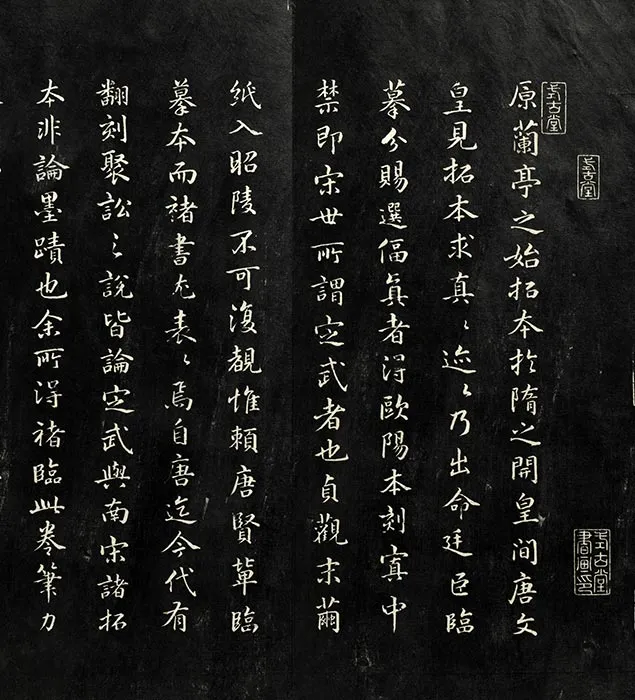 式古堂
式古堂
式古堂書畫印
原蘭亭之始拓本於隋之開皇间唐文
皇見拓本求真々迹々乃出命廷臣臨
摹分賜選偪真者得歐陽本刻寘中
禁即宋世所謂定武者也貞觀末繭
紙入昭陵不可復覩惟賴唐賢輩臨
摹本而褚書尤表々焉自唐迄今代有
翻刻聚訟之說皆論定武與南宋諸拓
本非論墨蹟也余所得褚臨此卷筆力